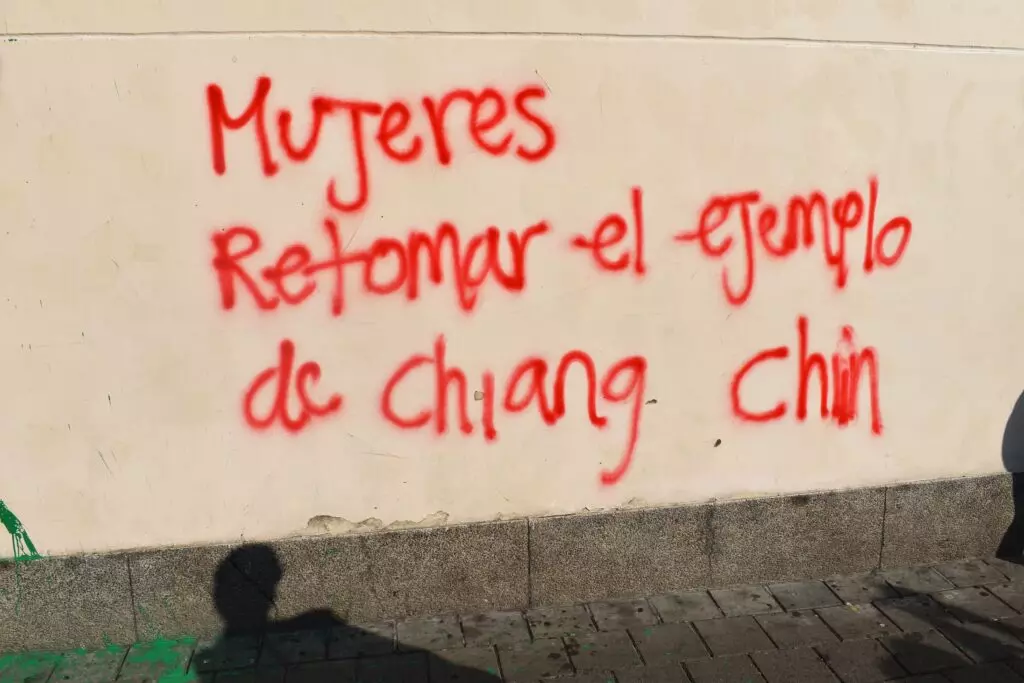 Mujeres
Retomar el ejemplo
de Chiang Chin